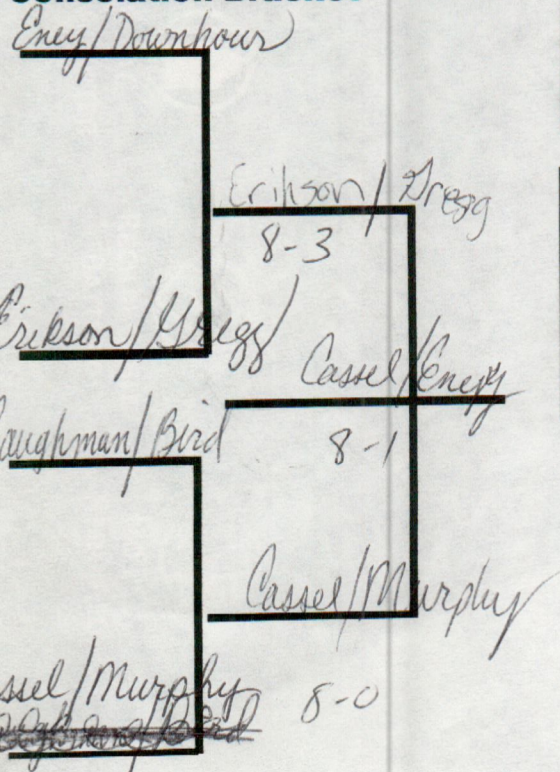 Eney/Downhour
Erikson/Gregg
8-3
Erikson/Gregg
Cassel/Eneyy
aughman/Bird
8-1
Cassel/Murphy
ssel/Murphy
8-0